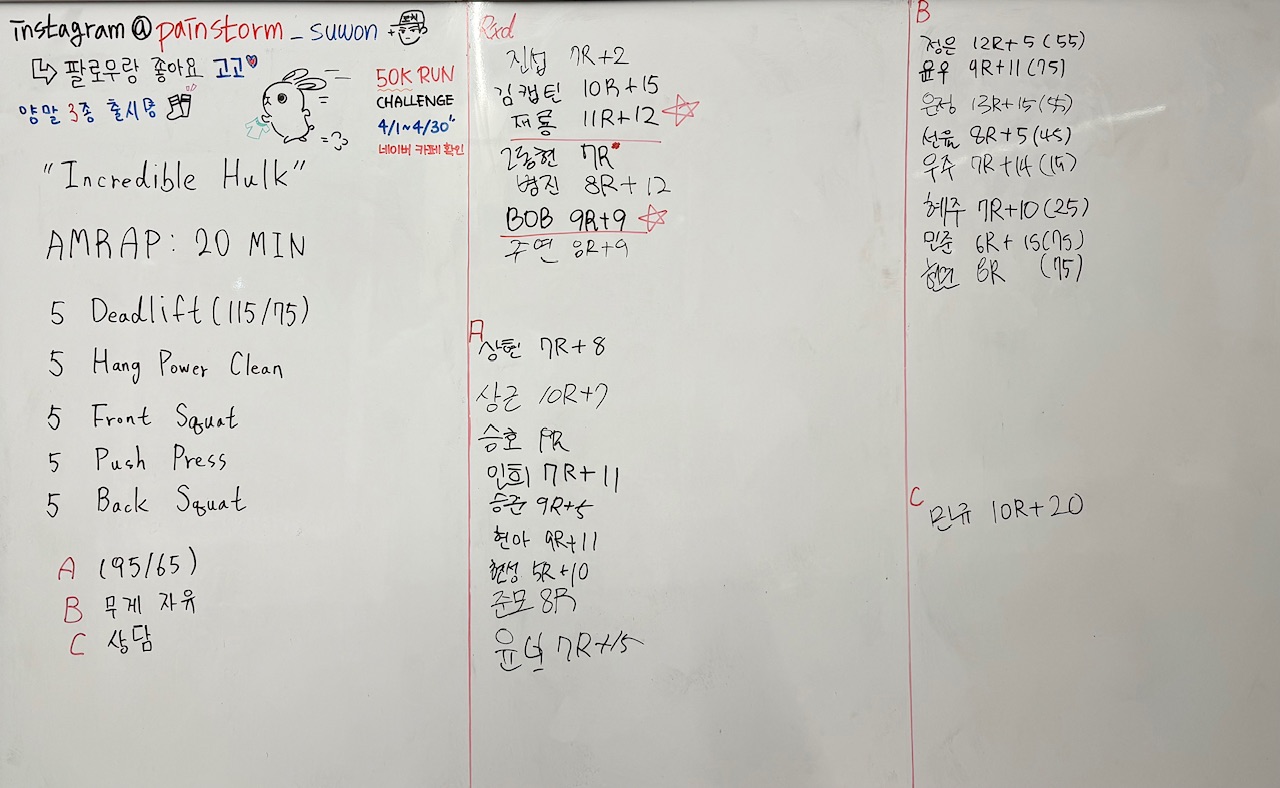 instagram@painstorm_suwon
팔로우랑 좋아요 고고
양말 3종 출시중
50K RUN
CHALLENGE
4/1~4/30
네이버 카페 확인
"Incredible Hulk"
AMRAP: 20 MIN
5 Deadlift (115/75)
5 Hang Power Clean
5 Front Squat
5 Push Press
5 Back Squat
A (95/65)
B 무게 자유
C 상담
Rxd
진섭 7R+2
김캡틴 10R+15
재룡 11R+12
7R
병진 8R+12
BOB 9R+9
주연 8R+9
A
상현 7R+8
상근 10R+7
승호 9R
민희 7R+11
승준 9R+5
현아 9R+11
현성 5R+10
준모 8R
7R+15
B
정은 12R+5 (55)
윤우 9R+11 (75)
은정 13R+15 (55)
8R+5 (45)
우주 7R+14 (15)
혜주 7R+10 (25)
민준 6R+15 (75)
(75)
C
민규 10R+20